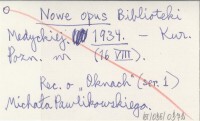 Nowe opus Biblioteki
Medyckiej. 1934. — Kur.
Pozn. nr (16 VIII).
Rec. o „Oknach" (ser. 1)
Michała Pawlikowskiego.